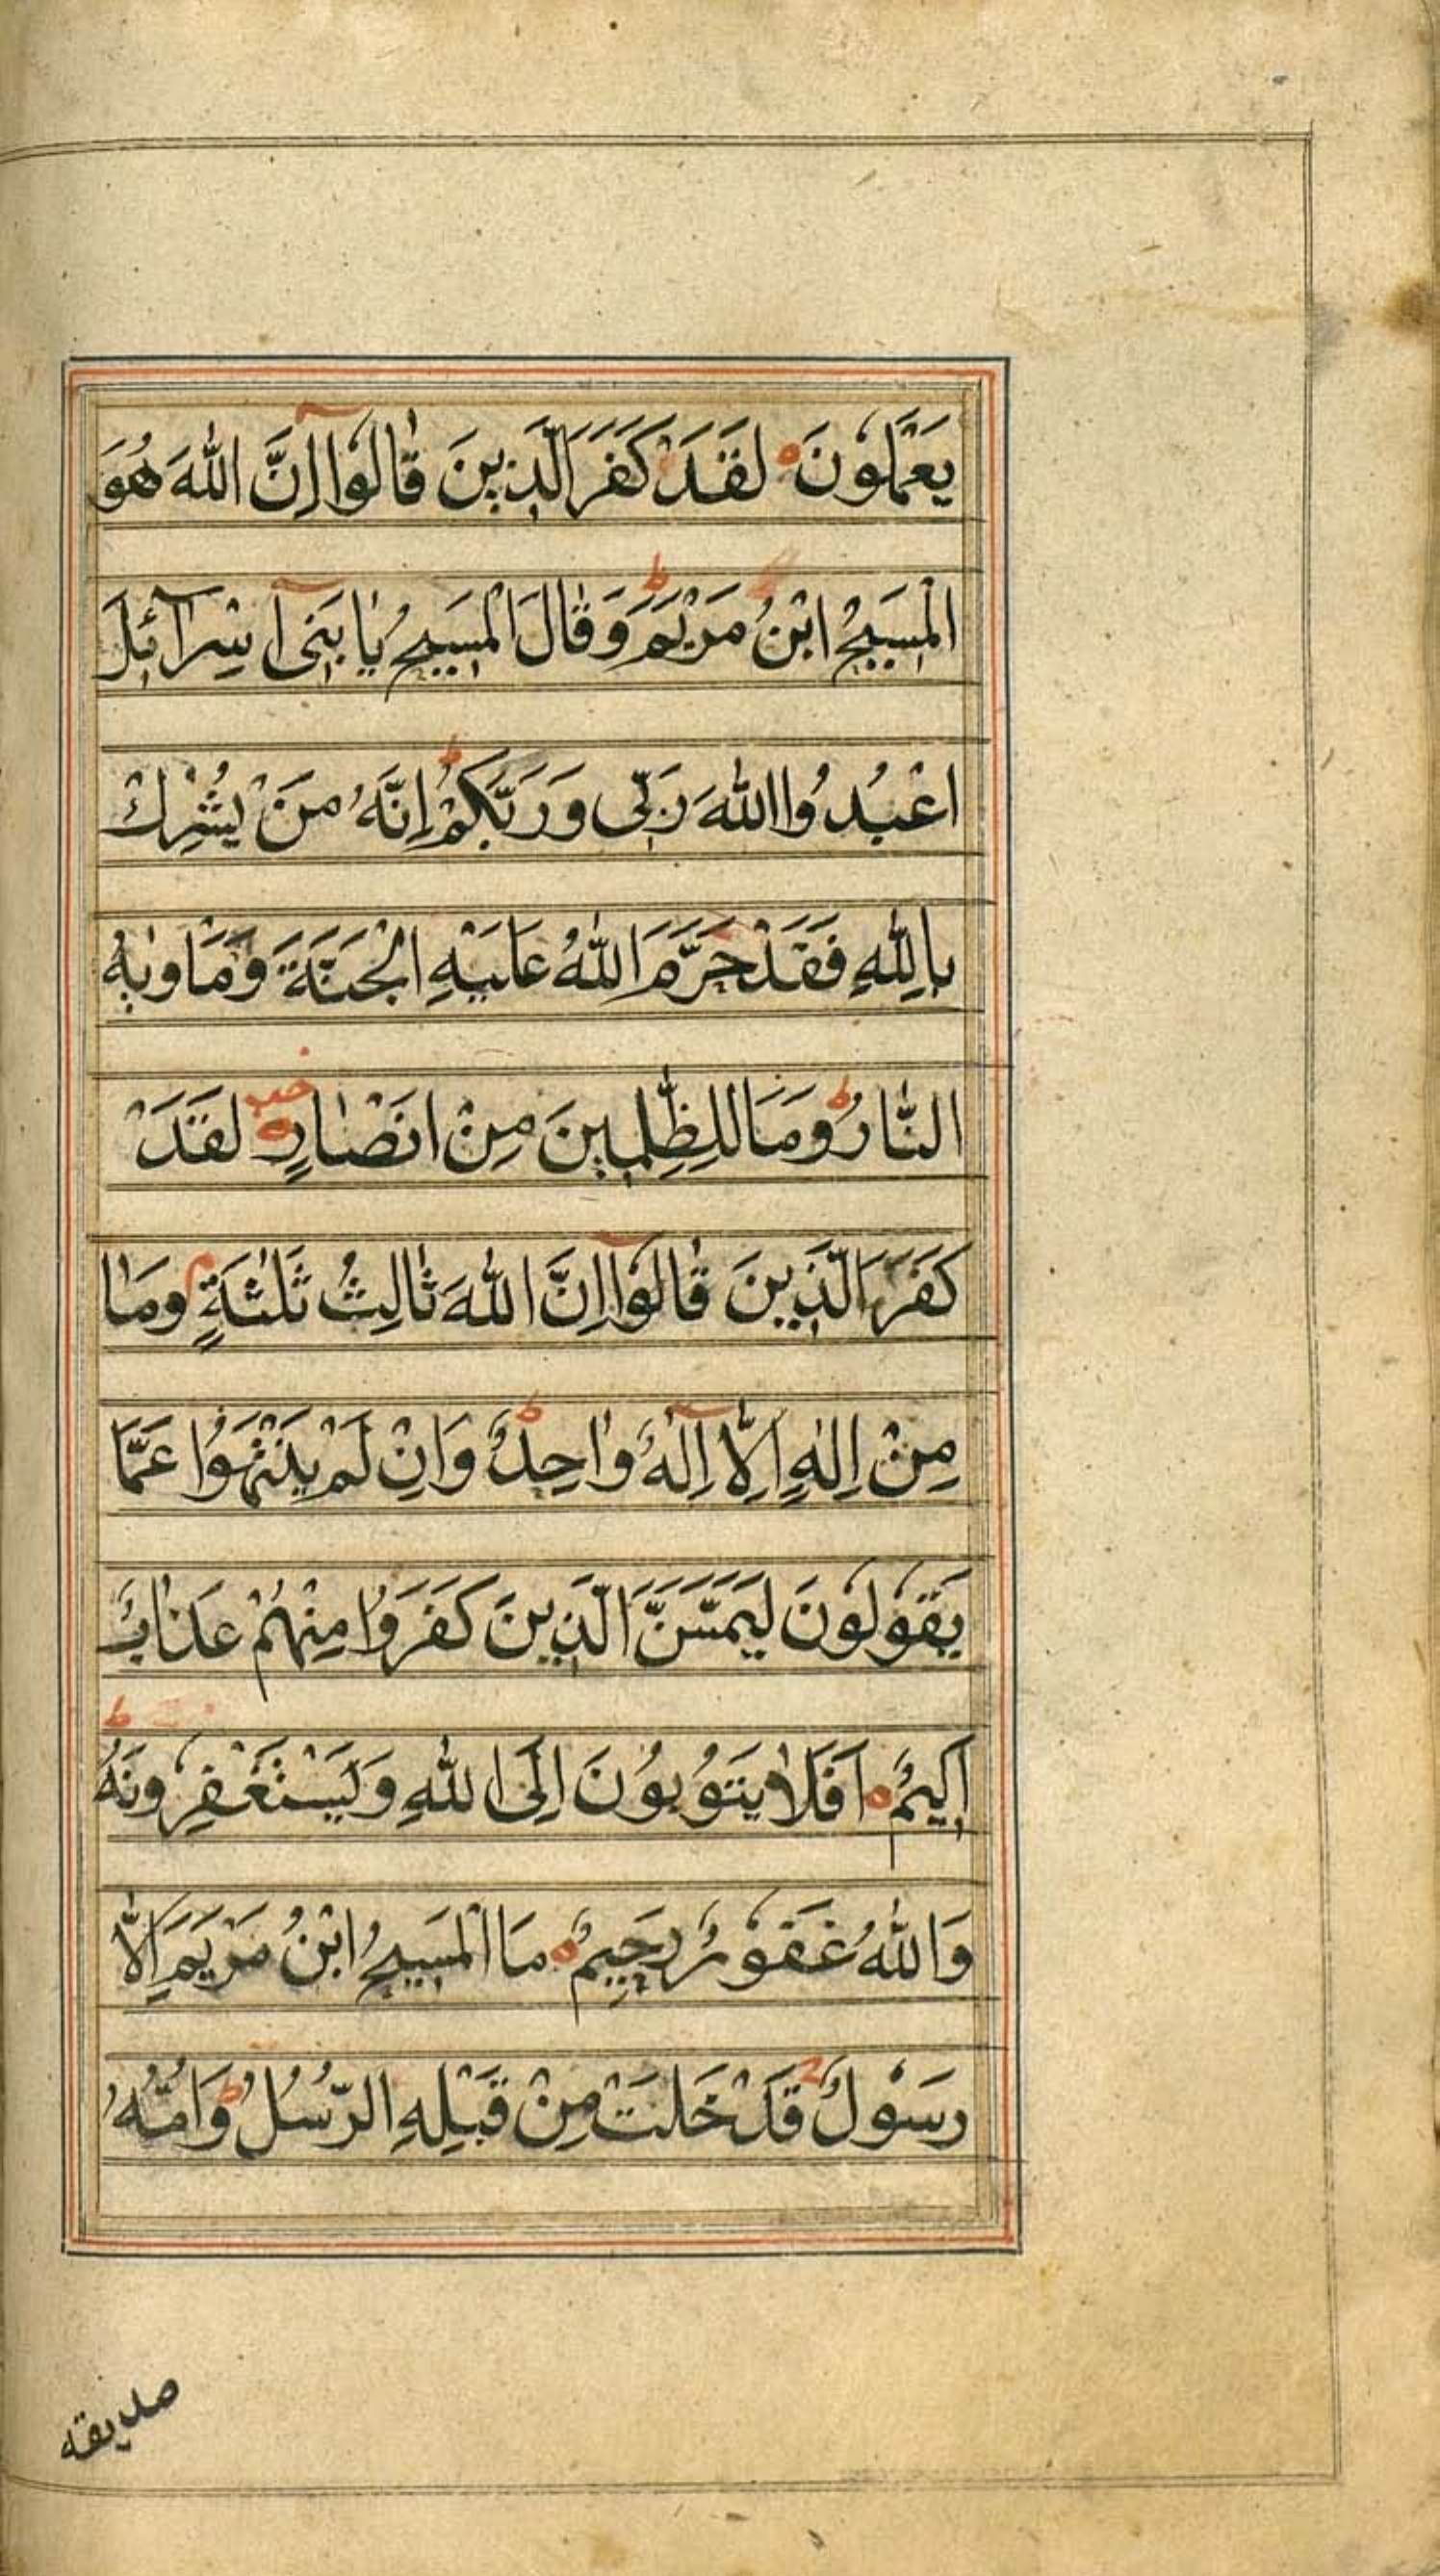 يَعْمَلُونَ ۝ لَقَدْ كَفَرَ الَّذِينَ قَالُوٓا اِنَّ اللّٰهَ هُوَ
الْمَسِيحُ ابْنُ مَرْيَمَ ط وَقَالَ الْمَسِيحُ يَا بَنِىٓ اِسْرَآئِلَ
اعْبُدُوا اللّٰهَ رَبِّى وَرَبَّكُمْ ط اِنَّهُ مَنْ يُشْرِكْ
بِاللّٰهِ فَقَدْ حَرَّمَ اللّٰهُ عَلَيْهِ الْجَنَّةَ وَمَاْوٰىهُ
النَّارُ ط وَمَا لِلظّٰلِمِينَ مِنْ اَنْصَارٍ ۝ لَقَدْ
كَفَرَ الَّذِينَ قَالُوٓا اِنَّ اللّٰهَ ثَالِثُ ثَلٰثَةٍ م وَمَا
مِنْ اِلٰهٍ اِلَّآ اِلٰهٌ وَاحِدٌ ط وَاِنْ لَمْ يَنْتَهُوْا عَمَّا
يَقُولُونَ لَيَمَسَّنَّ الَّذِينَ كَفَرُوْا مِنْهُمْ عَذَابٌ
اَلِيمٌ ۝ اَفَلَا يَتُوبُونَ اِلَى اللّٰهِ وَيَسْتَغْفِرُونَهُ ط
وَاللّٰهُ غَفُورٌ رَحِيمٌ ۝ مَا الْمَسِيحُ ابْنُ مَرْيَمَ اِلَّا
رَسُولٌ قَدْ خَلَتْ مِنْ قَبْلِهِ الرُّسُلُ ط وَاُمُّهُ
صديقه